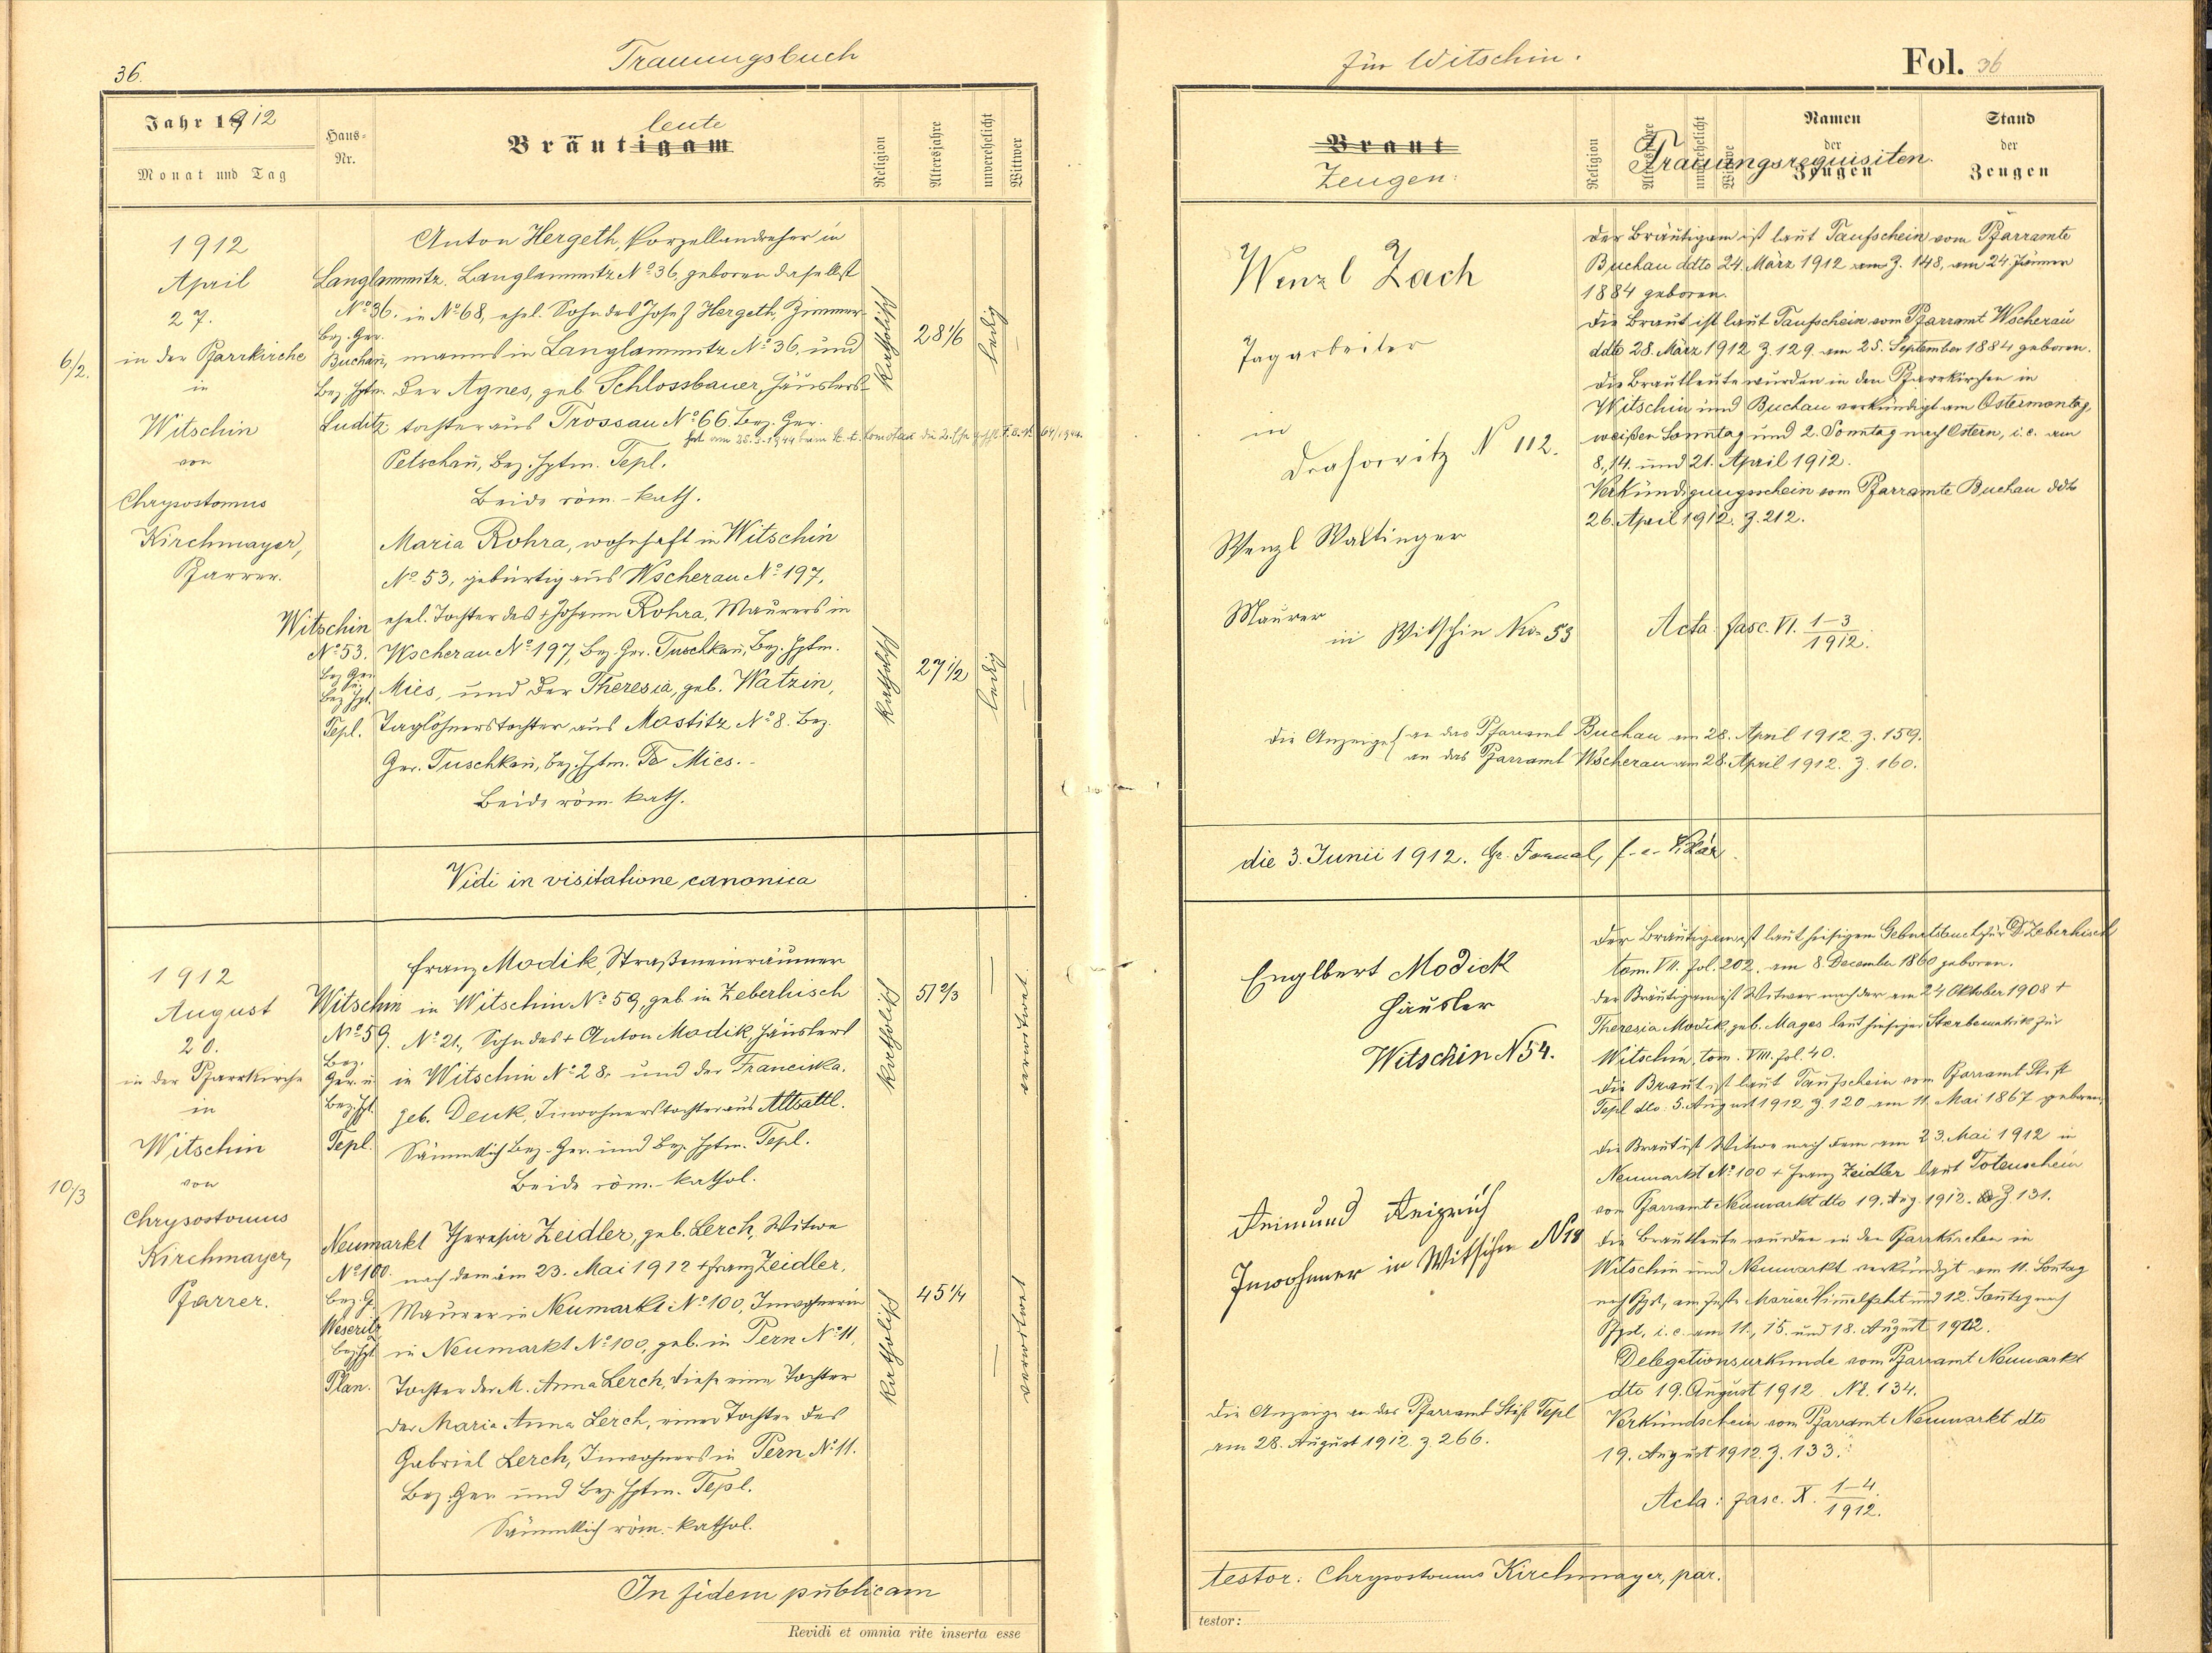 36.
Trauungsbuch
Jahr 1912
Monat und Tag
Haus-
Nr.
Bräutigam
leute
Religion
Altersjahre
unverehelicht
Wittwer
1912
April
27.
6/2.
in der Pfarrkirche
in
Witschin
von
Chrysostomus
Kirchmayer,
Pfarrer.
Anton Hergeth, Porzellandreher in
Langlammitz. Langlammitz No 36, geboren daselbst
No 36. in No 68, ehel. Sohn des Josef Hergeth, Zimmer-
Bez. Ger.
Buchau, manns in Langlammitz No 36, und
Bez. Hptm. der Agnes, geb. Schlossbauer, Häuslers-
Luditz tochter aus Trossau No 66. Bez. Ger.
Petschau, Bez. Hptm. Tepl.
Beide röm.-kath.
katholisch
28 1/6
ledig
Maria Rohra, wohnhaft in Witschin
No 53, gebürtig aus Wscherau No 197,
Witschin ehel. Tochter des + Johann Rohra, Maurers in
No 53. Wscherau No 197, Bez. Ger. Tuschkau, Bez. Hptm.
Bez. Ger.
u.
Bez. Hpt. Mies, und der Theresia, geb. Watzin,
Tepl. Taglöhnerstochter aus Mastitz No 8. Bez.
Ger. Tuschkau, Bez. Hptm. Mies.
Beide röm. kath.
katholisch
27 1/2
ledig
Vidi in visitatione canonica
1912
August
20.
in der Pfarrkirche
in
Witschin
von
10/3
Chrysostomus
Kirchmayer,
Pfarrer.
Franz Modik, Straßeneinräumer
Witschin in Witschin No 59, geb. in Zeberhisch
No 59. No 21, Sohn des + Anton Modik, Häuslers
Bez.
Ger. u. in Witschin No 28, und der Franciska,
Bez. Hpt. geb. Denk, Inwohnerstochter aus Altsattl.
Tepl. Sämmtlich Bez. Ger. und Bez. Hptm. Tepl.
Beide röm.-kathol.
katholisch
51 2/3
verwitwet
Neumarkt Theresia Zeidler, geb. Lerch, Witwe
No 100. nach dem am 23. Mai 1912 + Franz Zeidler,
Bez. G. Maurer in Neumarkt No 100, Inwohnerin
Weseritz
Bez. Hpt. in Neumarkt No 100, geb. in Pern No 11,
Plan. Tochter der M. Anna Lerch, diese eine Tochter
der Maria Anna Lerch, einer Tochter des
Gabriel Lerch, Inwohners in Pern No 11.
Bez. Ger. und Bez. Hptm. Tepl.
Sämmtlich röm.-kathol.
katholisch
45 1/4
verwitwet
In fidem publicam
Revidi et omnia rite inserta esse
für Witschin.
Fol. 36
Braut
Zeugen.
Religion
Altersjahre
unverehelicht
Wittwe
Namen
der
Zeugen
Trauungsrequisiten.
Stand
der
Zeugen
Wenzl Zach
Tagarbeiter
in
Drahowitz N 112.
Wenzl Waltinger
Maurer
in Witschin Nro 53
Der Bräutigam ist laut Taufschein vom Pfarramte
Buchau ddto 24. März 1912 Z. 148, am 24 Jänner
1884 geboren.
Die Braut ist laut Taufschein vom Pfarramt Wscherau
ddto 28. März 1912 Z. 129. am 25. September 1884 geboren.
Die Brautleute wurden in den Pfarrkirchen in
Witschin und Buchau verkündigt am Ostermontag,
weißen Sonntag und 2. Sonntag nach Ostern, i. e. am
8., 14. und 21. April 1912.
Verkündigungsschein vom Pfarramte Buchau ddto
26. April 1912. Z. 212.
Acta: fasc. VI. 1-3
1912.
Die Anzeige an das Pfarramt Buchau am 28. April 1912. Z. 159.
an das Pfarramt Wscherau am 28. April 1912. Z. 160.
die 3. Junii 1912.
Englbert Modick
Häusler
Witschin N 54.
Inwohner in Witschin N 18
Der Bräutigam ist laut hiesigem Geburtsbuch für D. Zeberhisch
tom. VII. fol. 202. am 8. December 1860 geboren.
Der Bräutigam ist Witwer nach der am 24 Oktober 1908 +
Theresia Modik, geb. Mages laut hiesiger Sterbematrik für
Witschin, tom. VIII. fol. 40.
Die Braut ist laut Taufschein vom Pfarramt Stift
Tepl dto. 5. August 1912 Z. 120 am 11. Mai 1867 geboren,
Die Braut ist Witwe nach dem am 23. Mai 1912 in
Neumarkt No 100 + Franz Zeidler laut Totenschein
vom Pfarramt Neumarkt dto 19. Aug. 1912. Z. 131.
Die Brautleute wurden in den Pfarrkirchen in
Witschin und Neumarkt verkündigt am 11. Sontag
nach Pfgst, am Feste Mariae Himmelfahrt und 12. Sontag nach
Pfgst, i. e. am 11., 15. und 18. August 1912.
Delegationsurkunde vom Pfarramt Neumarkt
dto 19. August 1912 Nr. 134.
Verkündschein vom Pfarramt Neumarkt dto
19. August 1912. Z. 133.
Acta: fasc. X. 1-4.
1912.
Die Anzeige an das Pfarramt Stift Tepl
am 28. August 1912. Z. 266.
testor: Chrysostomus Kirchmayer, par.
testor: